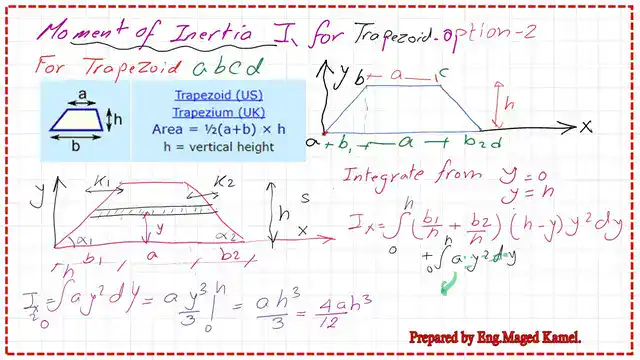 Moment of Inertia Ix for Trapezoid-option-2
For Trapezoid abcd
a
h
b
Trapezoid (US)
Trapezium (UK)
Area = ½(a+b) × h
h = vertical height
y
b
a
c
h
a
b1
a
b2
d
x
y
K1
K2
y
h
s
x
α1
α2
b1
a
b2
Integrate from y=0
y=h
Ix=∫₀ʰ (b1/h + b2/h) (h-y) y²dy
+∫₀ʰ a·y²dy
Ix2=∫₀ʰ ay²dy = a y³/3 |₀ʰ = ah³/3 = 4ah³/12
Prepared by Eng.Maged Kamel.